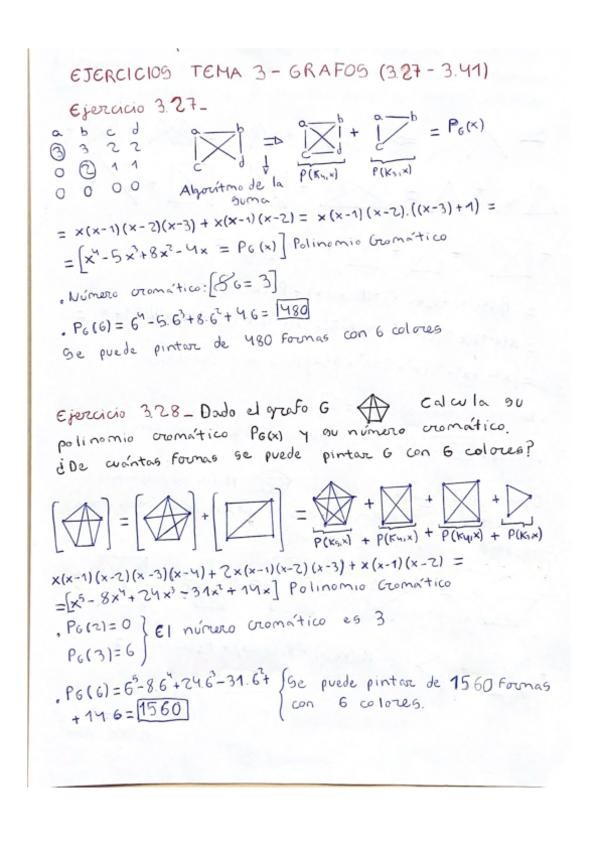 EJERCICIOS TEMA 3 - GRAFOS (3.27 - 3.41)
Ejercicio 3.27_
a b c d
3 3 2 2
0 2 1 1
0 0 0 0
a b c d ⇒ a b c d + a b c = PG(x)
P(K4,x) P(K3,x)
Algoritmo de la
suma
= x(x-1)(x-2)(x-3) + x(x-1)(x-2) = x(x-1)(x-2).((x-3)+1) =
= [x⁴-5x³+8x²-4x = PG(x)] Polinomio Cromático
. Número cromático: [δG = 3]
. PG(6) = 6⁴-5.6³+8.6²+4.6 = 480
Se puede pintar de 480 formas con 6 colores
Ejercicio 3.28_ Dado el grafo G Calcula su
polinomio cromático PG(x) y su número cromático.
¿De cuántas formas se puede pintar G con 6 colores?
[ ] = [ ] + [ ] = + + +
P(K5,x) + P(K4,x) + P(K4,x) + P(K3,x)
x(x-1)(x-2)(x-3)(x-4) + 2x(x-1)(x-2)(x-3) + x(x-1)(x-2) =
= [x⁵-8x⁴+24x³-31x²+14x] Polinomio Cromático
. PG(2) = 0
PG(3) = 6 } El número cromático es 3
. PG(6) = 6⁵-8.6⁴+24.6³-31.6²+ { Se puede pintar de 1560 formas
+14.6 = 1560 con 6 colores.